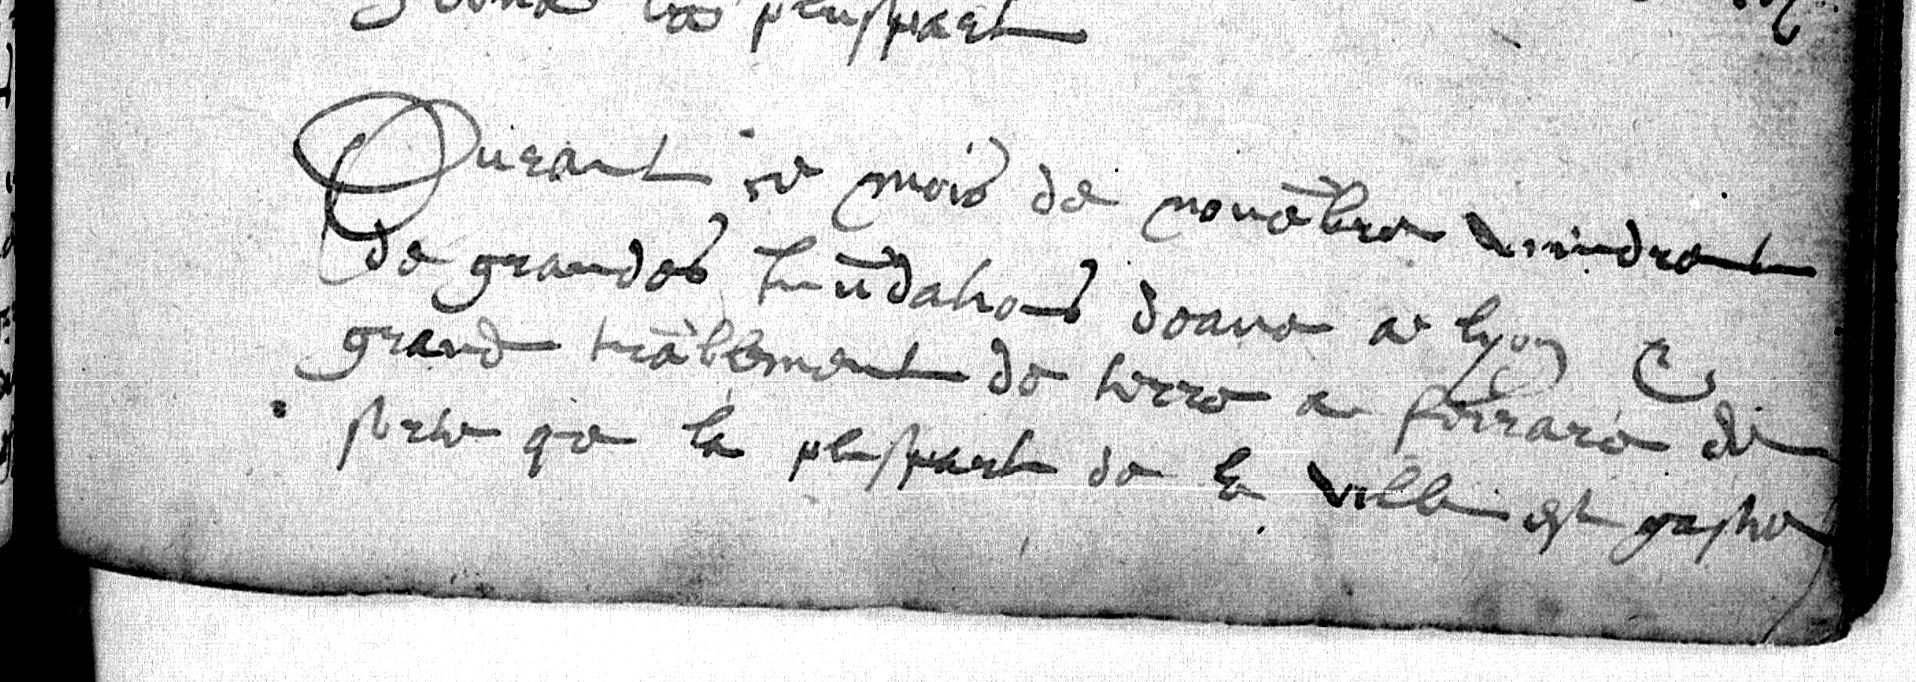 la pluspart
Durant ce mois de nouēbre vindrent
de grandes Inūdations deaue a lyon &
grand trāblement de terre a ferrare de
sorte que la pluspart de la ville est gastee